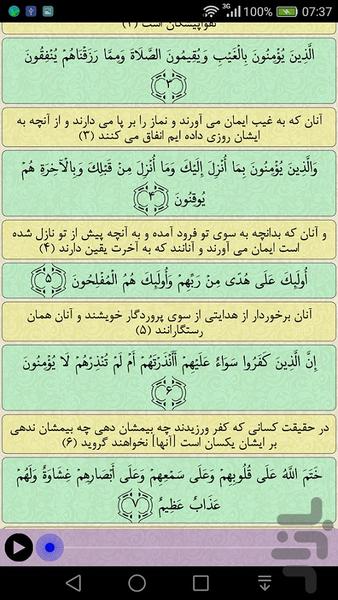 3G 100% 07:37
تقواپیشگان است (۲)
الَّذِينَ يُؤْمِنُونَ بِالْغَيْبِ وَيُقِيمُونَ الصَّلَاةَ وَمِمَّا رَزَقْنَاهُمْ يُنْفِقُونَ
﴿۳﴾
آنان که به غیب ایمان می آورند و نماز را بر پا می دارند و از آنچه به
ایشان روزی داده ایم انفاق می کنند (۳)
وَالَّذِينَ يُؤْمِنُونَ بِمَا أُنْزِلَ إِلَيْكَ وَمَا أُنْزِلَ مِنْ قَبْلِكَ وَبِالْآخِرَةِ هُمْ
يُوقِنُونَ ﴿۴﴾
و آنان که بدانچه به سوی تو فرود آمده و به آنچه پیش از تو نازل شده
است ایمان می آورند و آنانند که به آخرت یقین دارند (۴)
أُولَئِكَ عَلَى هُدًى مِنْ رَبِّهِمْ وَأُولَئِكَ هُمُ الْمُفْلِحُونَ ﴿۵﴾
آنان برخوردار از هدایتی از سوی پروردگار خویشند و آنان همان
رستگارانند (۵)
إِنَّ الَّذِينَ كَفَرُوا سَوَاءٌ عَلَيْهِمْ أَأَنْذَرْتَهُمْ أَمْ لَمْ تُنْذِرْهُمْ لَا يُؤْمِنُونَ
﴿۶﴾
در حقیقت کسانی که کفر ورزیدند چه بیمشان دهی چه بیمشان ندهی
بر ایشان یکسان است [آنها] نخواهند گروید (۶)
خَتَمَ اللَّهُ عَلَى قُلُوبِهِمْ وَعَلَى سَمْعِهِمْ وَعَلَى أَبْصَارِهِمْ غِشَاوَةٌ وَلَهُمْ
عَذَابٌ عَظِيمٌ ﴿۷﴾